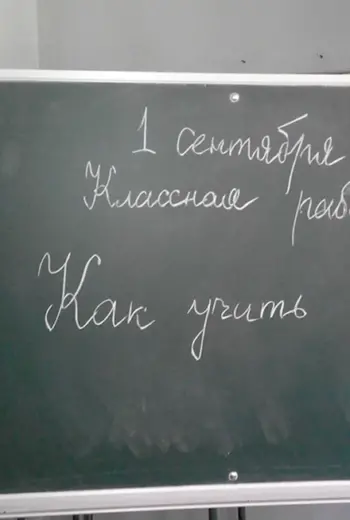 1 сентября
Классная раб
Как учить